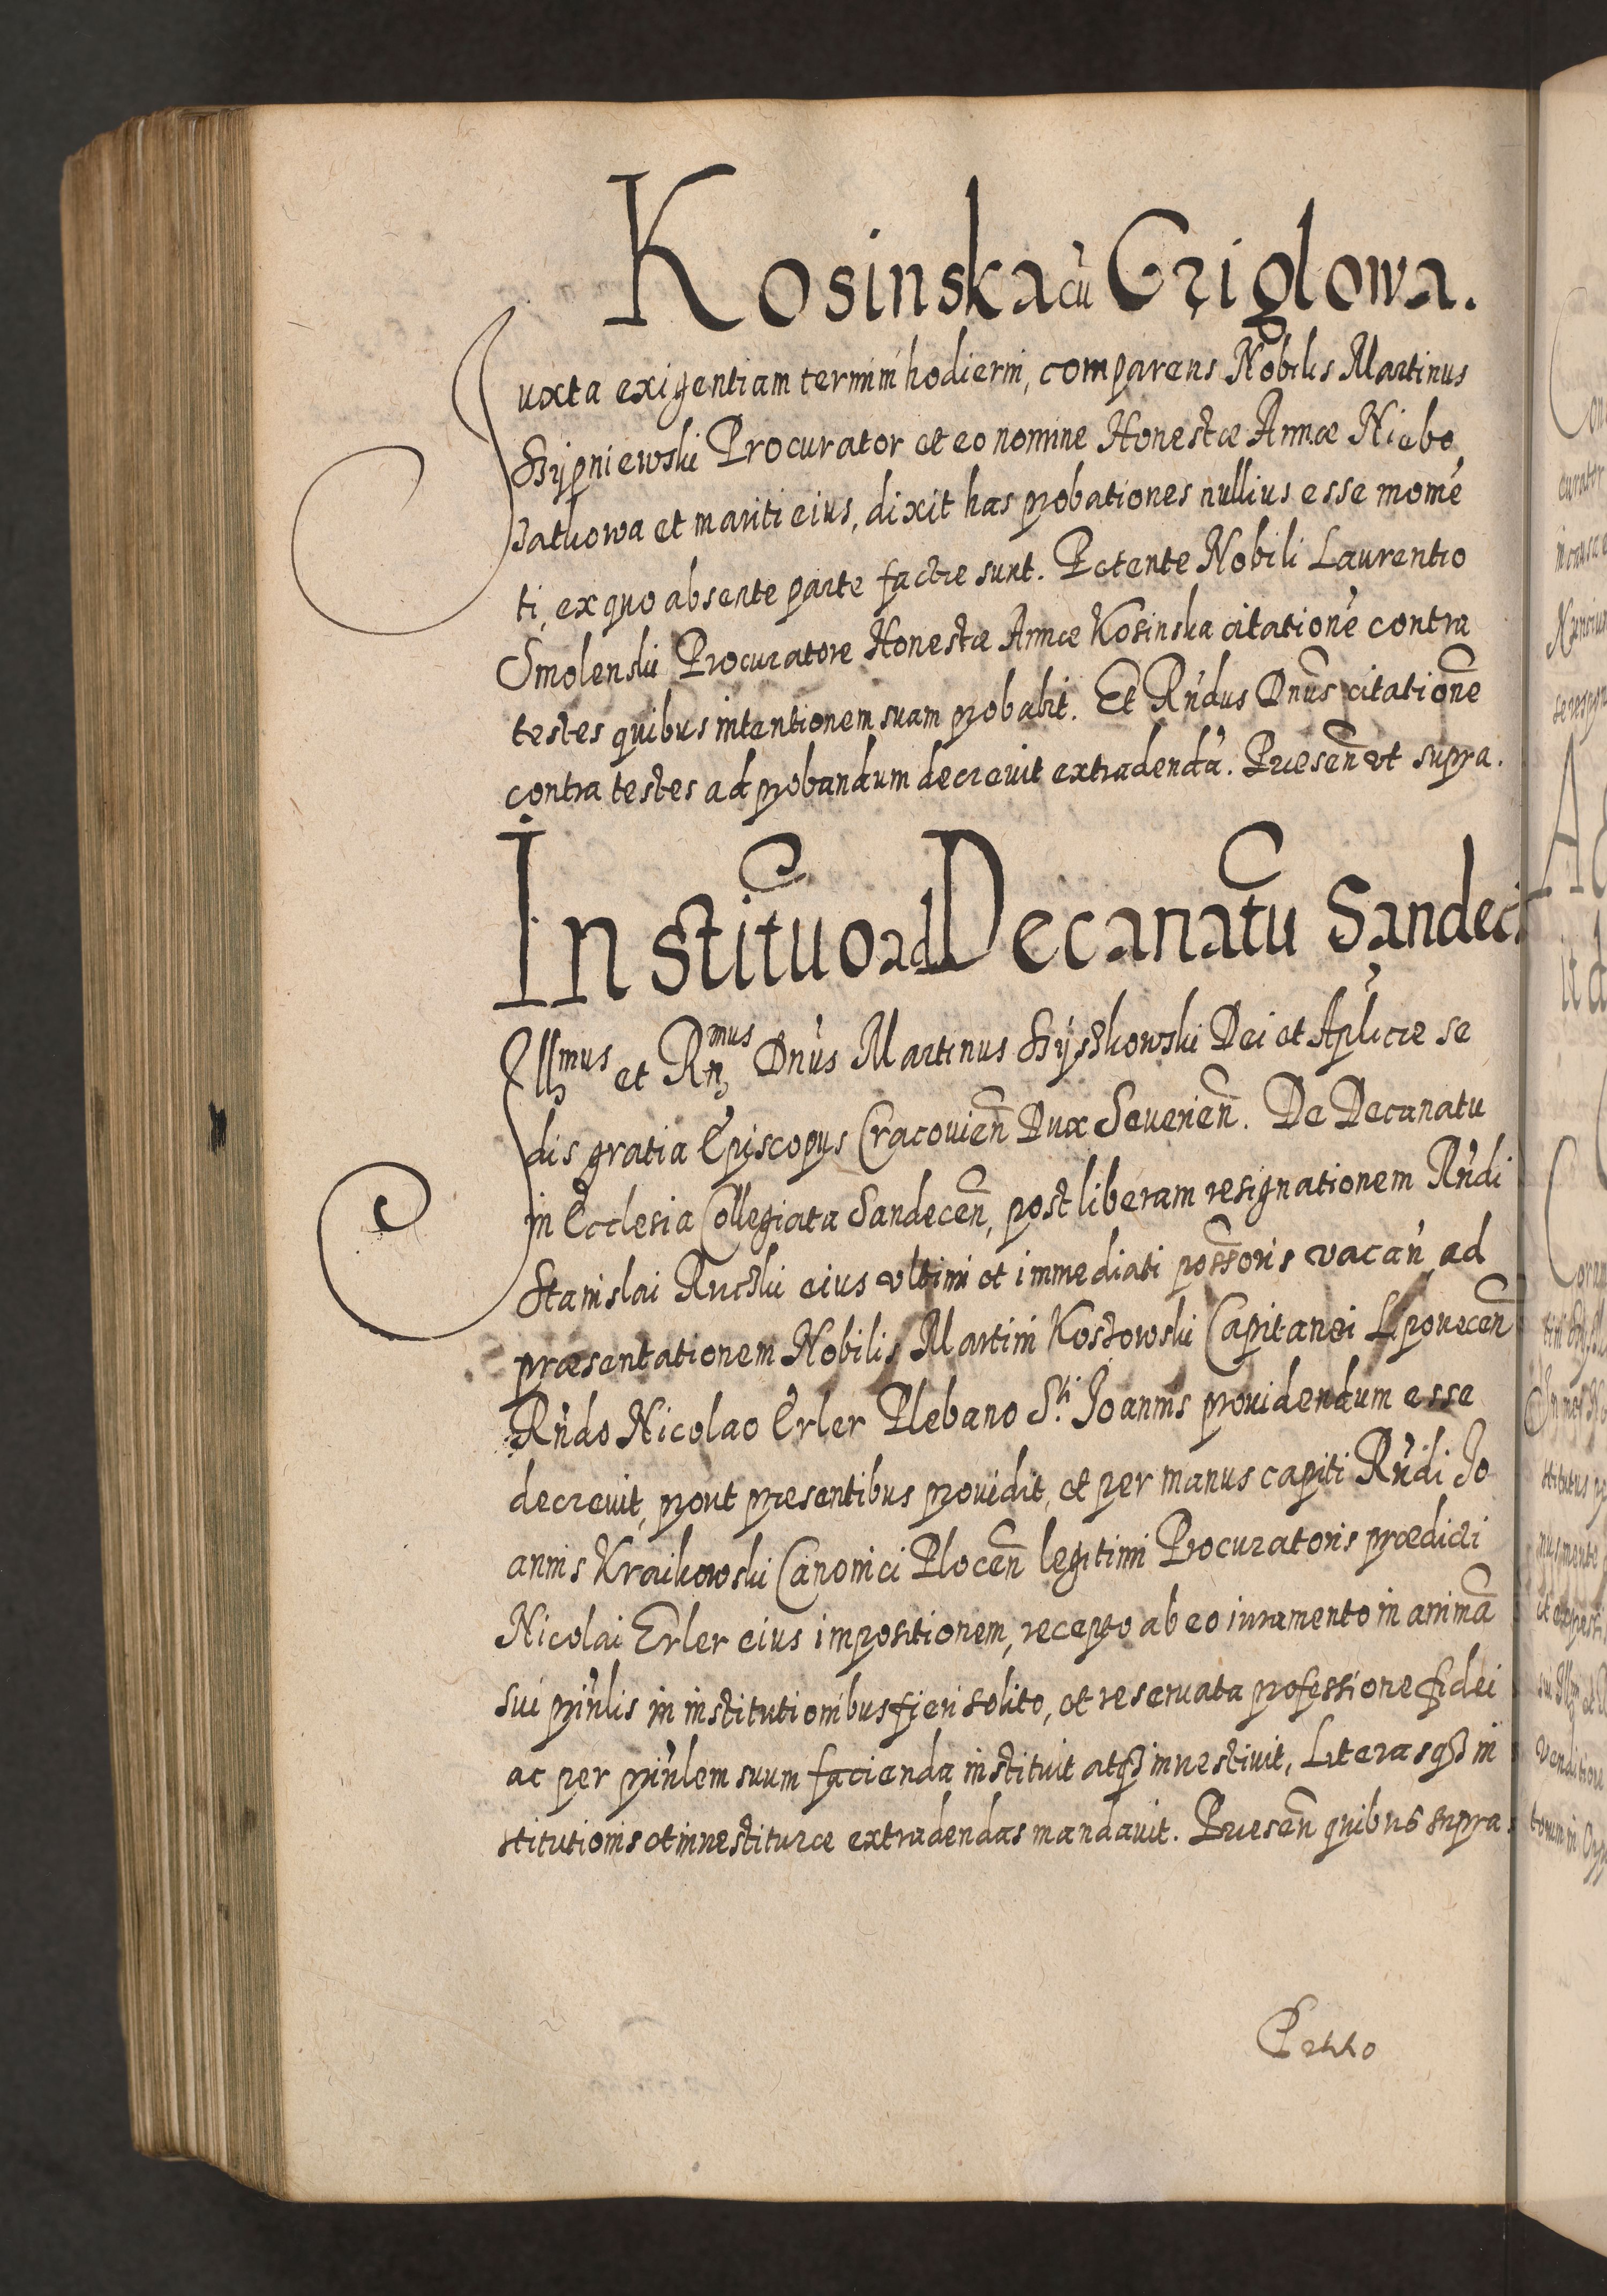 Kosinska cũ Grziglowa.
Juxta exigentiam termini hodierni, comparens Nobilis Martinus
Szypniewski Procurator et eo nomine Honestæ Annæ Niebo
Jatkowa et mariti eius, dixit has probationes nullius esse momẽ
ti, ex quo absente parte factæ sunt. Petente Nobili Laurentio
Smolenski Procuratore Honestæ Annæ Kosinska citationẽ contra
testes quibus intentionem suam probabit. Et Rñdus Dñus citationẽ
contra testes ad probandum decrevit extradendã. Præsen̄ vt supra.
Institũo ad Decanatũ Sandec:
Illmus et Rñmus Dñus Martinus Szyszkowski Dei et Aplicæ se
dis gratia Episcopus Cracovien̄ Dux Severien̄. De Decanatu
in Ecclesia Collegiata Sandecen̄, post liberam resignationem Rñdi
Stanislai eius vltimi et immediati poss̃oris vacan̄, ad
præsentationem Nobilis Martini Kossowski Capitanei Lipovecen̄
Rñdo Nicolao Erler Plebano S.ti Joannis providendum esse
decrevit, prout præsentibus providit, et per manus capiti Rñdi Jo
annis Kraikowski Canonici Plocen̄ legitimi Procuratoris prædicti
Nicolai Erler eius impositionem, recepto ab eo iuramento in animã
sui prinlis in institutionibus fieri solito, et reservata professione fidei
ac per prinlem suum facienda instituit atq₃ investivit, Literasq₃ in
stitutionis et investituræ extradendas mandavit. Præsen̄ quibus supra.